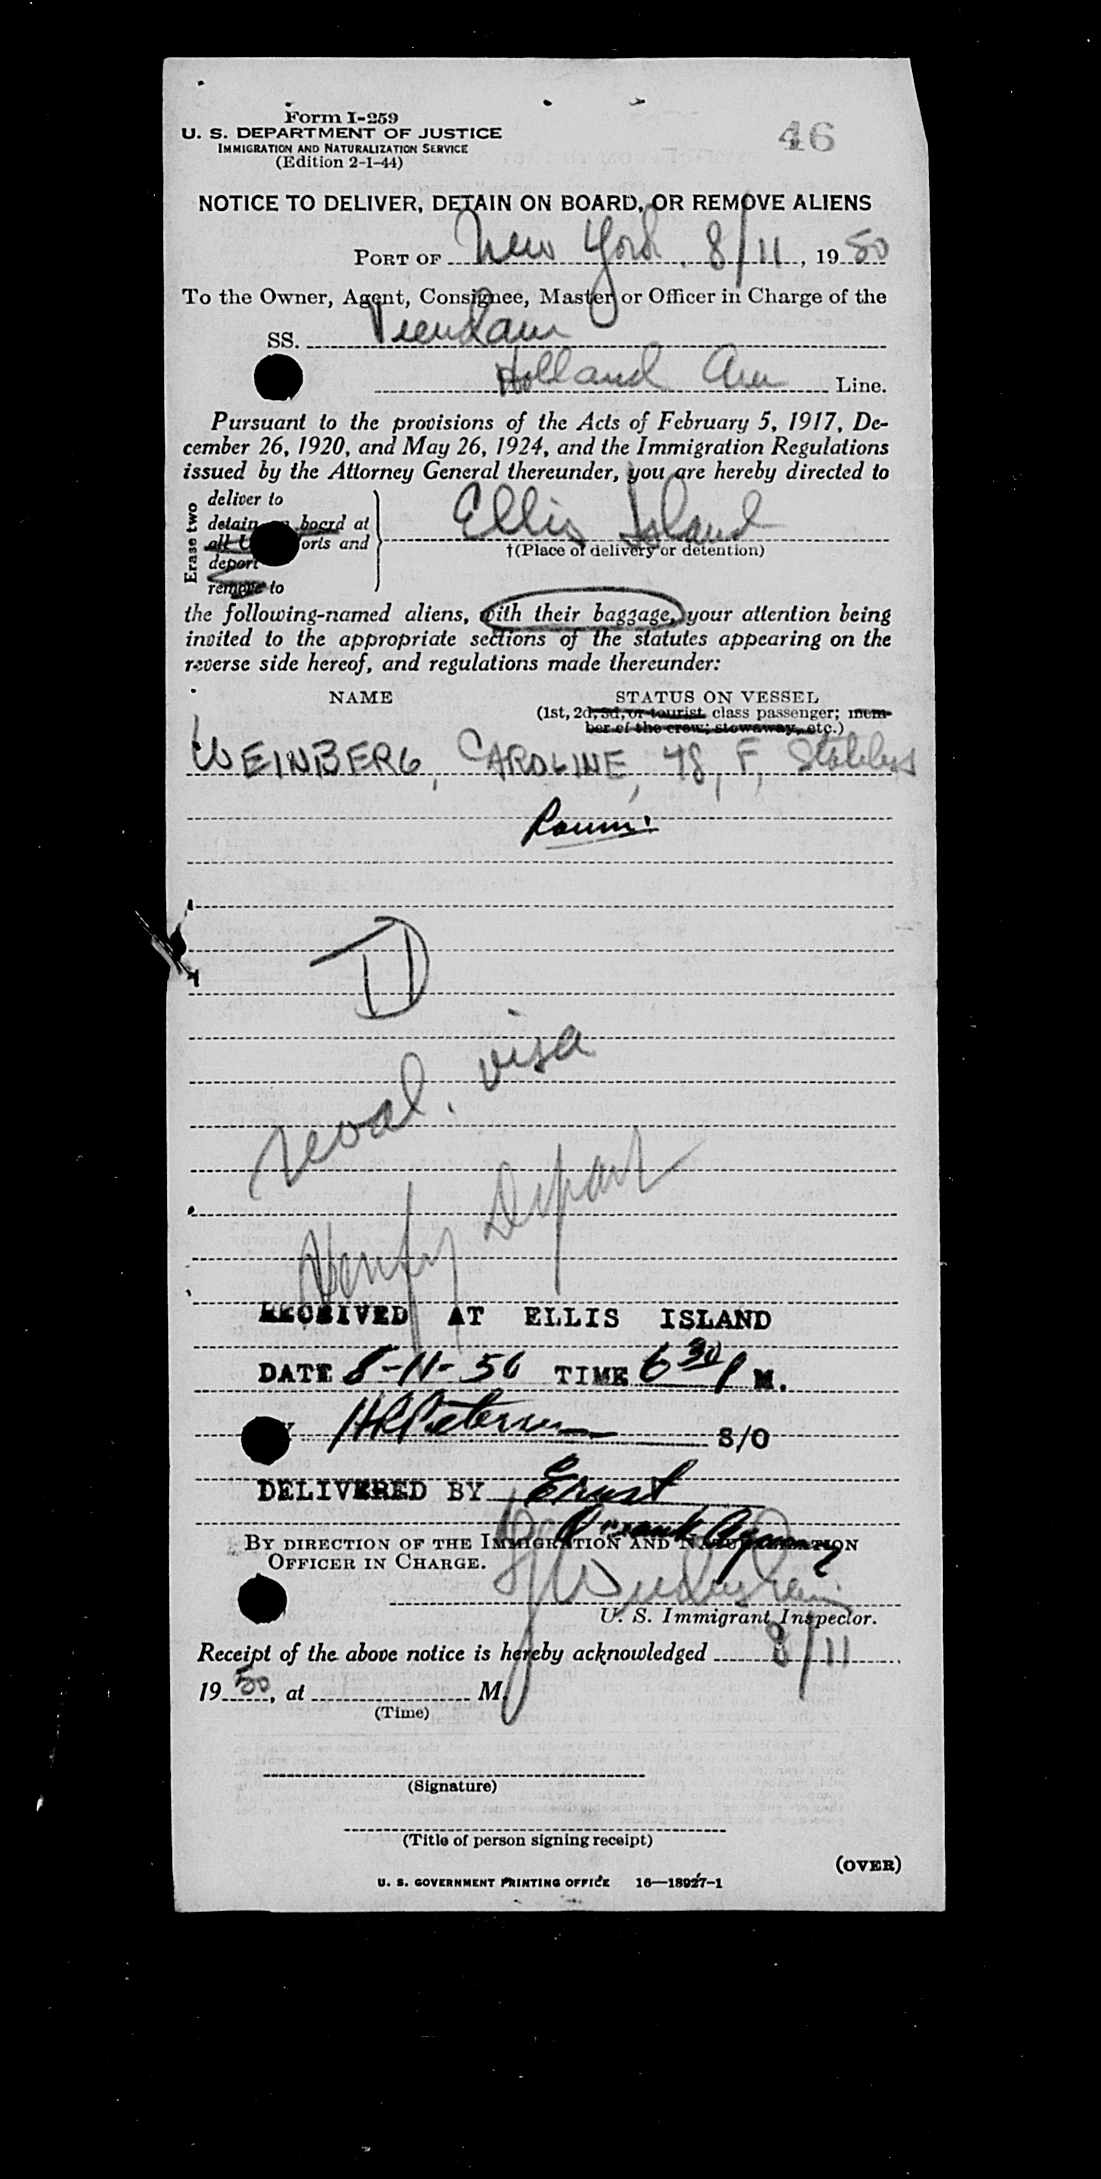 Form I-259
U. S. DEPARTMENT OF JUSTICE
IMMIGRATION AND NATURALIZATION SERVICE
(Edition 2-1-44)
46
NOTICE TO DELIVER, DETAIN ON BOARD, OR REMOVE ALIENS
PORT OF New York, 8/11, 1950
To the Owner, Agent, Consignee, Master or Officer in Charge of the
SS. Veendam
Holland Am Line.
Pursuant to the provisions of the Acts of February 5, 1917, De-
cember 26, 1920, and May 26, 1924, and the Immigration Regulations
issued by the Attorney General thereunder, you are hereby directed to
Erase two
deliver to
detain on board at
all U orts and
deport
remove to
Ellis Island
†(Place of delivery or detention)
the following-named aliens, with their baggage, your attention being
invited to the appropriate sections of the statutes appearing on the
reverse side hereof, and regulations made thereunder:
NAME STATUS ON VESSEL
(1st, 2d, 3d, or tourist class passenger; mem-
ber of the crew; stowaway, etc.)
WEINBERG, CAROLINE, 78, F, Stateless
Roum.
D
reval. visa
Verify Depart
RECEIVED AT ELLIS ISLAND
DATE 8-11-50 TIME 6 30 P M.
HR Petersen S/O
DELIVERED BY Ernst
BY DIRECTION OF THE IMMIGRATION AND NATURALIZATION
OFFICER IN CHARGE.
U. S. Immigrant Inspector.
Receipt of the above notice is hereby acknowledged 8/11
1950, at M.
(Time)
(Signature)
(Title of person signing receipt)
(OVER)
U. S. GOVERNMENT PRINTING OFFICE 16—18927-1